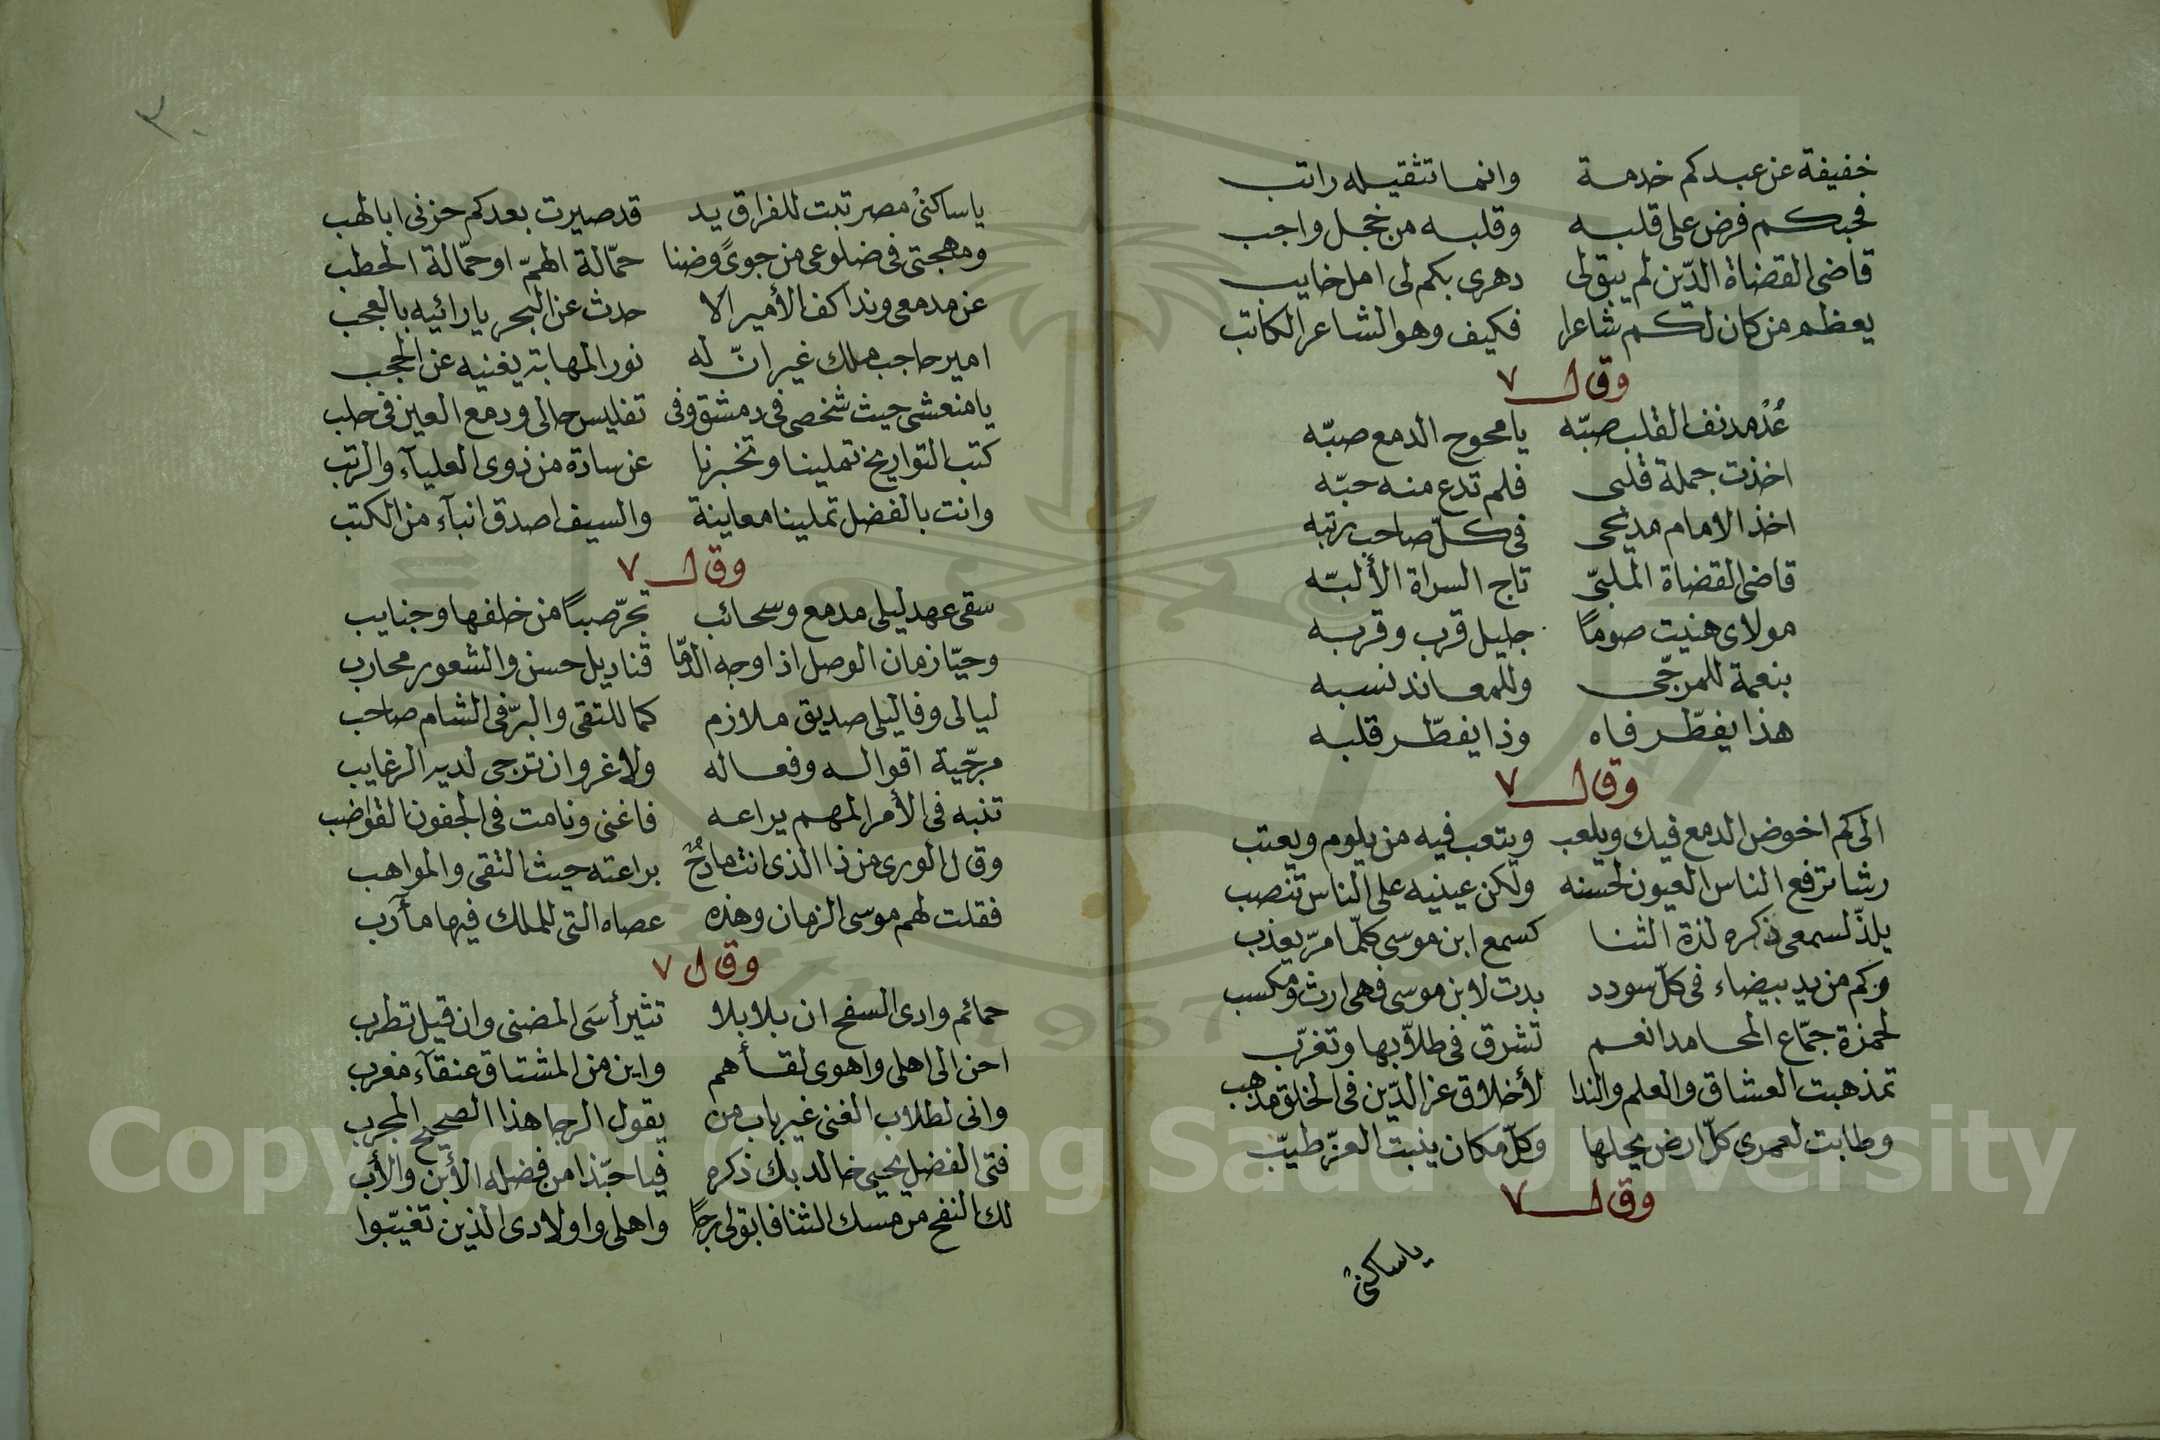 خفيفة عن عبدكم خدمة وانما تثقيله راتب
فحبكم فرض على قلبه وقلبه من خجل واجب
قاضى القضاة الدّين لم يبق لى دهرى بكم لى امل خايب
يعظم من كان لكم شاعرا فكيف وهو الشاعر الكاتب
وقال ٧
عُدْ مدنف القلب صبّه يا محوج الدمع صبّه
اخذت جملة قلبى فلم تدع منه حبّه
اخذ الامام مديحى فى كلّ صاحب رتبه
قاضى القضاة الملبىّ تاج السراة الألبّه
مولاى هنيت صومًا جليل قرب وقربه
بنعمة للمرجّى وللمعاند نسبه
هذا يفطّر فاه وذا يفطّر قلبه
وقال ٧
الى كم اخوض الدمع فيك ويلعب ويتعب فيه من يلوم ويعتب
رشا ترفع الناس العيون لحسنه ولكن عينيه على الناس تنصب
يلذّ لسمعى ذكره لذة الثنا كسمع ابن موسى كلّما مرّ يعذب
وكم من يد بيضاء فى كلّ سودد بدت لابن موسى فهى ارث ومكسب
لحمزة جمّاع المحامد انعم تشرق فى طلاّبها وتغرّب
تمذهبت العشاق والعلم والندا لأخلاق عز الدّين فى الخلق مذهب
وطابت لعمرى كلّ ارض يحلها وكلّ مكان ينبت العزّ طيّب
وقال ٧
ياساكنى
٣٠
ياساكنى مصر تبت للفراق يد قد صيرت بعدكم حزنى ابا لهب
ومهجتى فى ضلوعى من جوىً وضنا حمّالة الهمّ او حمّالة الحطب
عن مدمعى وندا كف الأمير الا حدث عن البحر يا رائيه بالعجب
امير حاجب ملك غير انّ له نور المهابة يغنيه عن الحجب
يا منعشى حيث شخصى فى دمشق وفى تفليس حالى ودمع العين فى حلب
كتب التواريخ تملينا وتخبرنا عن سادة من ذوى العليآء والرتب
وانت بالفضل تملينا معاينة والسيف اصدق انبآء من الكتب
وقال ٧
سقى عهد ليلى مدمع وسحائب تجرّ صباً من خلفها وجنايب
وحيّا زمان الوصل اذ اوجه الدّما قناديل حسن والشعور محارب
ليالى وفا ليلى صديق ملازم كما للتقى والبرّ فى الشام صاحب
مرجّية اقواله وفعاله ولا غرو ان ترجى لديه الرغايب
تنبه فى الأمر المهم يراعه فاغنى ونامت فى الجفون القواضب
وقال الورى من ذا الذى انت مادحٌ براعته حيث التقى والمواهب
فقلت لهم موسى الزمان وهذه عصاه التى للملك فيها مآرب
وقال ٧
حمائم وادى السفح ان بلابلا تثير أسَى المضنى وان قيل تطرب
احن الى اهلى واهوى لقاءهم واين من المشتاق عنقآء مغرب
وانى لطلاب الغنى غير باب من يقول الرجا هذا الصحيح المجرب
فتى الفضل يحيى خالد بك ذكره فيا حبّذا من فضله الأبن والأب
لك النفح من مسك الثنا فابق لى رجًا واهلى واولادى الذين تغيّبوا
Copyright © King Saud University
1957